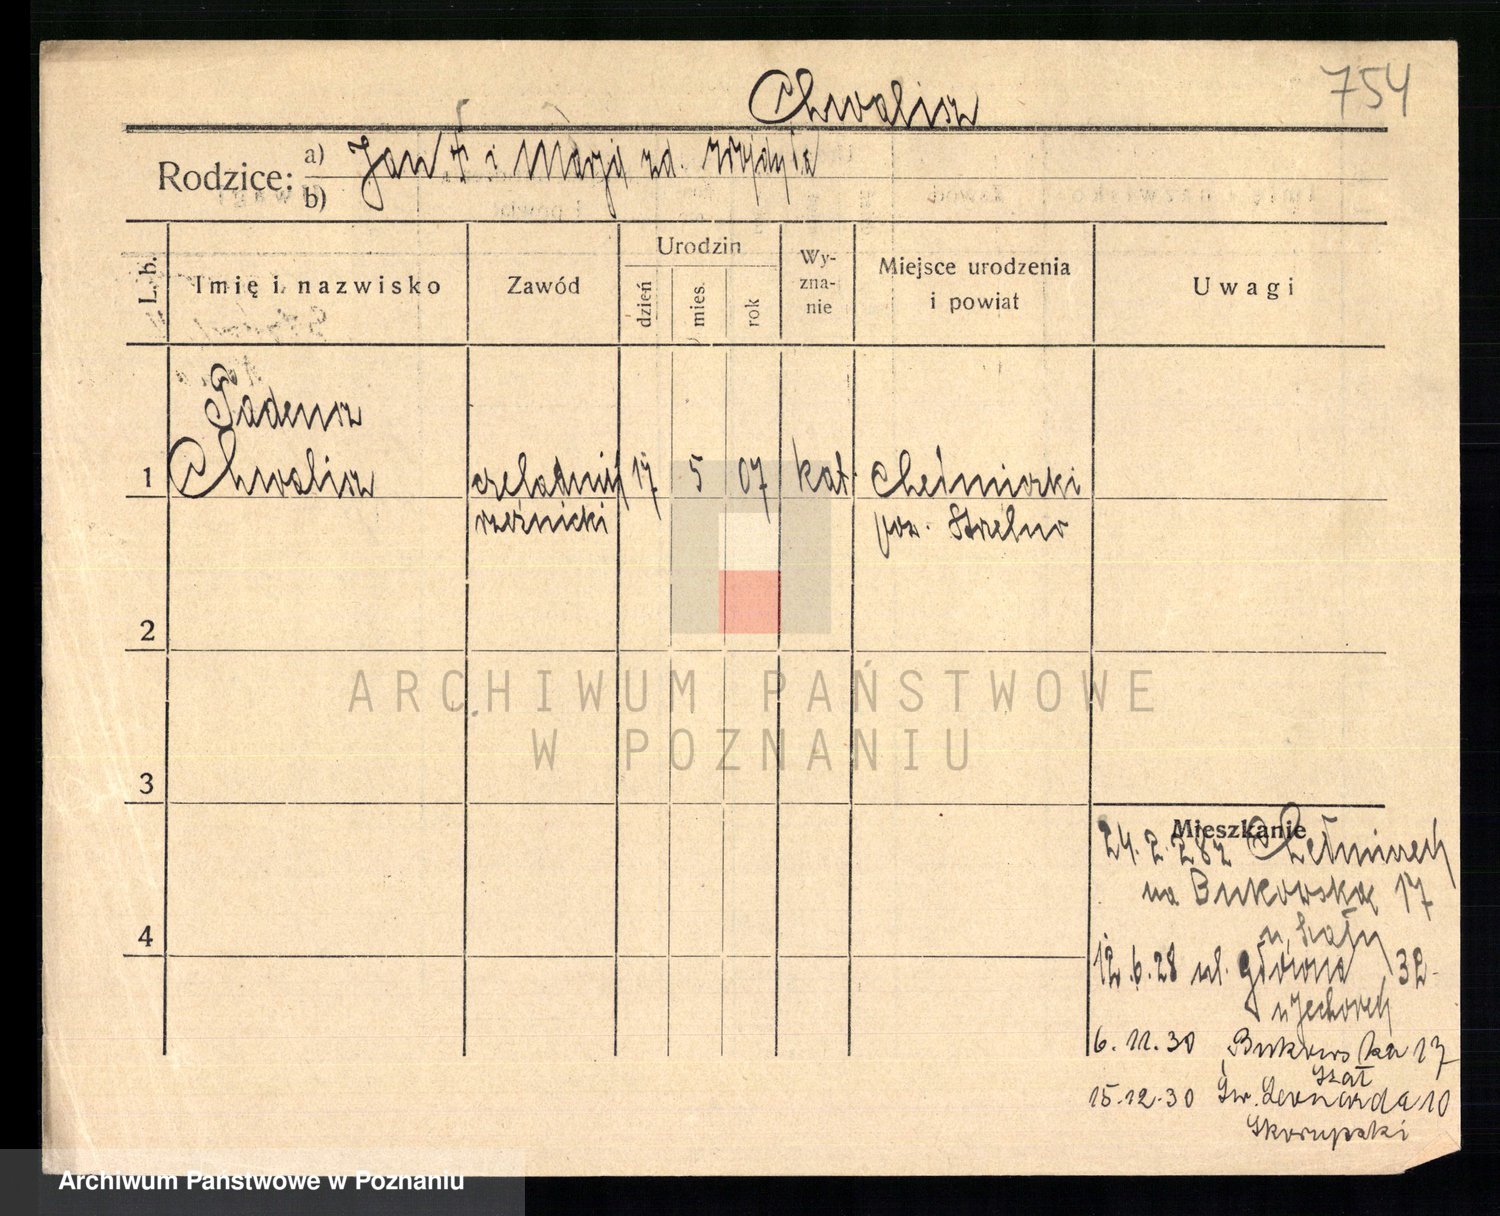 Chwalisz
754
Rodzice:
a) Jan, F i Marja zd. Wojdyła
b)
L. b.
Imię i nazwisko
Zawód
Urodzin
dzień
mies.
rok
Wy-
zna-
nie
Miejsce urodzenia
i powiat
Uwagi
Tadeusz
1 Chwalisz czeladnik 17 5 07 kat. Chełmiczki
rzeźnicki pow. Strzelno
2
ARCHIWUM PAŃSTWOWE
W POZNANIU
3
Mieszkanie
24. 2. 28 z
na Bukowską 17
4
12.6.28 ul. główna 32
6.11.30 Bukowska 17
Szał
15.12.30 Św. Leonarda 10
Skorupski
Archiwum Państwowe w Poznaniu